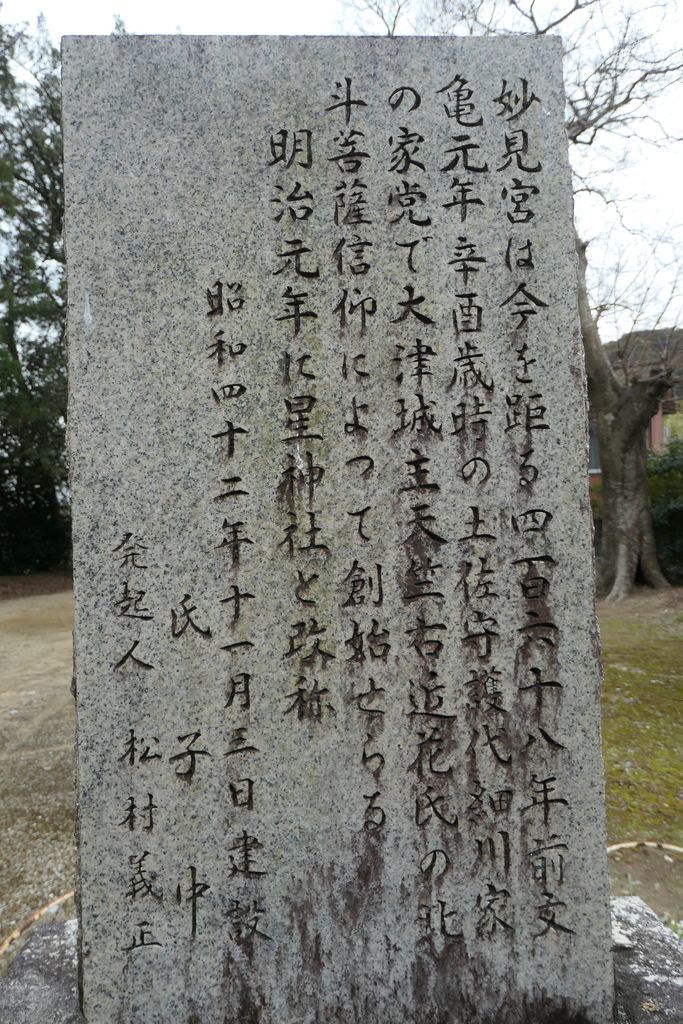 妙見宮は今を距る四百六十八年前文
亀元年辛酉歳時の土佐守護代細川家
の家党で大津城主天竺右近花氏の北
斗菩薩信仰によって創始せらる
明治元年に星神社と改称
昭和四十二年十一月三日建設
氏子中
発起人 松村義正